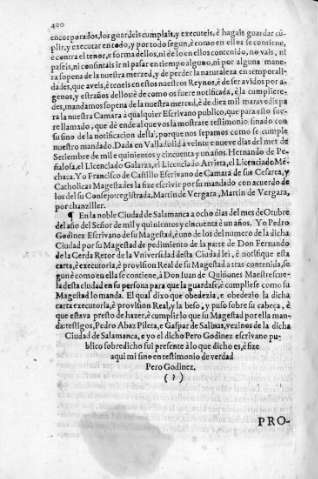 400
encorporados, los guardeis cumplais, y executeis, è hagais guardar cũ-
plir, y executar en todo, y por todo segun, è como en ellos se contiene,
è contra el tenor, e forma dellos, ni de lo en ellos contenido, no vais, ni
paseis, ni consintais ir ni pasar en tiempo alguno, ni por alguna mane-
ra sopena de la nuestra merzed, y de perder la naturaleza en temporali-
dades, que aveis, è teneis en estos nuestros Reynos, è de ser avidos por a-
genos, y estraños dellos è de como os fuere notificada, è la cumpliere-
des, mandamos sopena de la nuestra merced, è de diez mil maravedis pa
ra la nuestra Camara a qualquier Escrivano publico, que para esto fue-
re llamado, que dè ende al que vos la mostrare testimonio sinado con
su sino de la notificacion della, porque nos sepamos como se cumple
nuestro mandado. Dada en Valladolid a veinte e nueve dias del mes de
Setiembre de mil e quinientos y cincuenta y nu años. Hernando de Pe-
ñalosa el Licenciado Galarza, el Licenciado Arrieta, el Licenciado Mé-
chaca. Yo Francisco de Castillo Escrivano de Camara de sus Cesarea, y
Catholicas Magestades la fize escrivir por su mandado con acuerdo de
los del su Consejo registrada, Martin de Vergara, Martin de Vergara,
por chanziller.
¶ En la noble Ciudad de Salamanca a ocho dias del mes de Otubre
del año del Señor de mil y quinientos y cincuenta è un años. Yo Pedro
Godinez Escrivano de su Magestad, è uno de los del numero de la dicha
Ciudad por su Magestad de pedimiento de la parte de Don Fernando
de la Cerda Retor de la Universidad desta Ciudad lei, è notifique esta
carta, è executoria, è provision Real de su Magestad atras contenida, se
gun è como en ella se contiene, à Don Juan de Quiñones Maestrescue-
la desta ciudad en su persona para que la guardase, è cumpliese como su
Magestad lo manda. El qual dixo que obedezia, e obedezio la dicha
carta executoria, è provision Real, y la besò, y puso sobre su cabeça, è
que estava presto de hazer, è cumplir lo que su Magestad por ella man-
da testigos, Pedro Abaz Pileta, e Gaspar de Salinas, vezinos de la dicha
Ciudad de Salamanca, e yo el dicho Pero Godinez escrivano pu-
blico sobredicho fui presente à lo que dicho es, è fize
aqui mi sino en testimonio de verdad
Pero Godinez.
(?)
PRO-